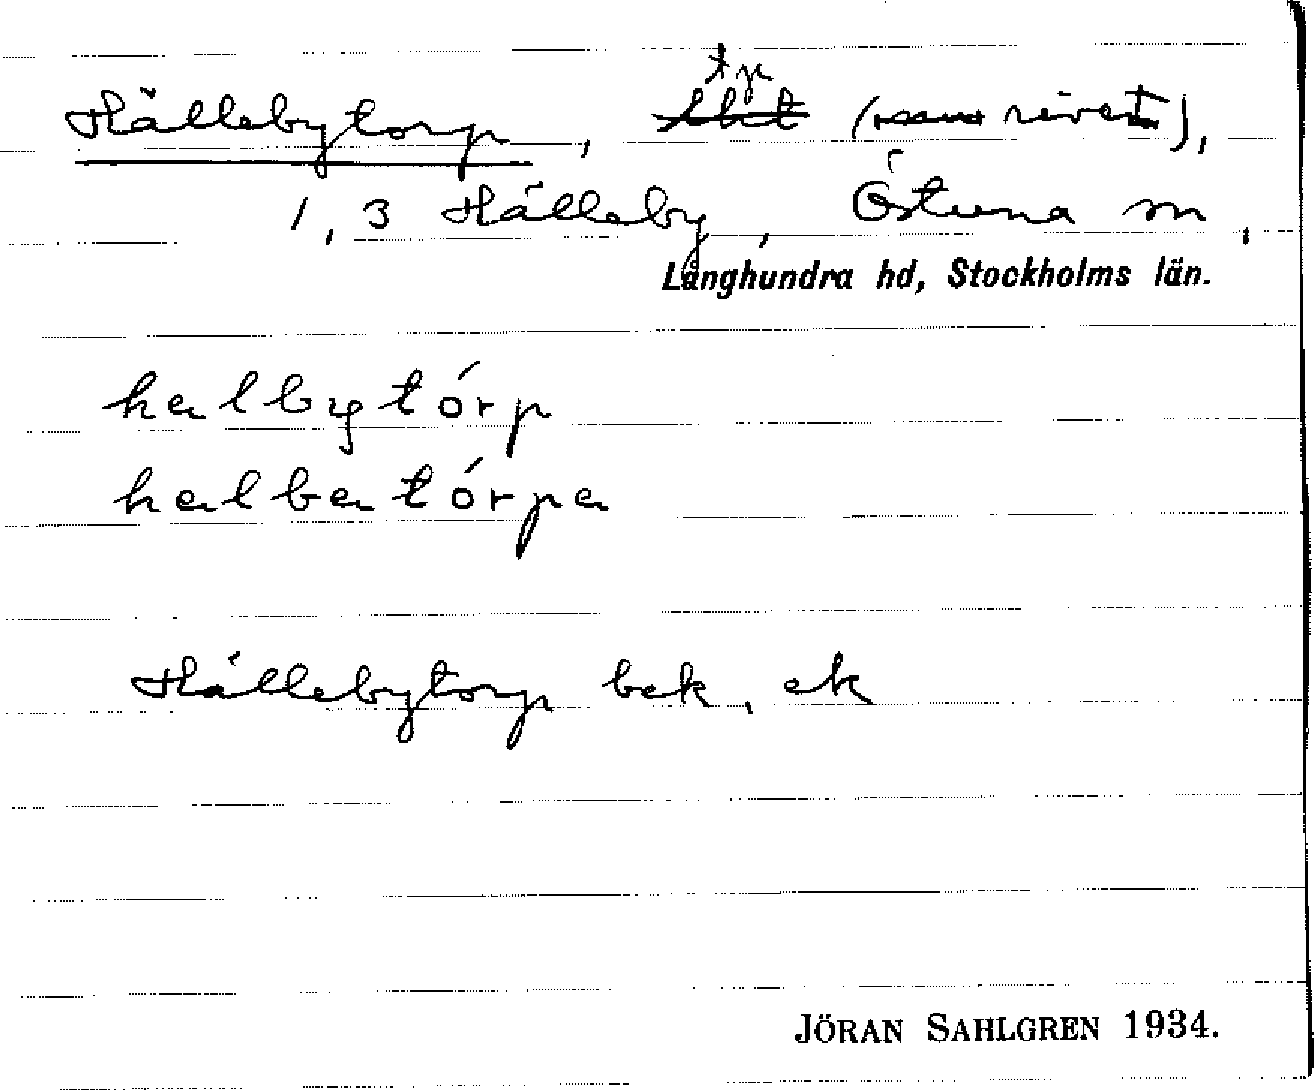 tp
Hällebytorp, (rivet),
1, 3 Hälleby, Östuna sn,
Långhundra hd, Stockholms län.
halbytórp
halbatórpa
Hällebytorp bek, ek
JÖRAN SAHLGREN 1934.